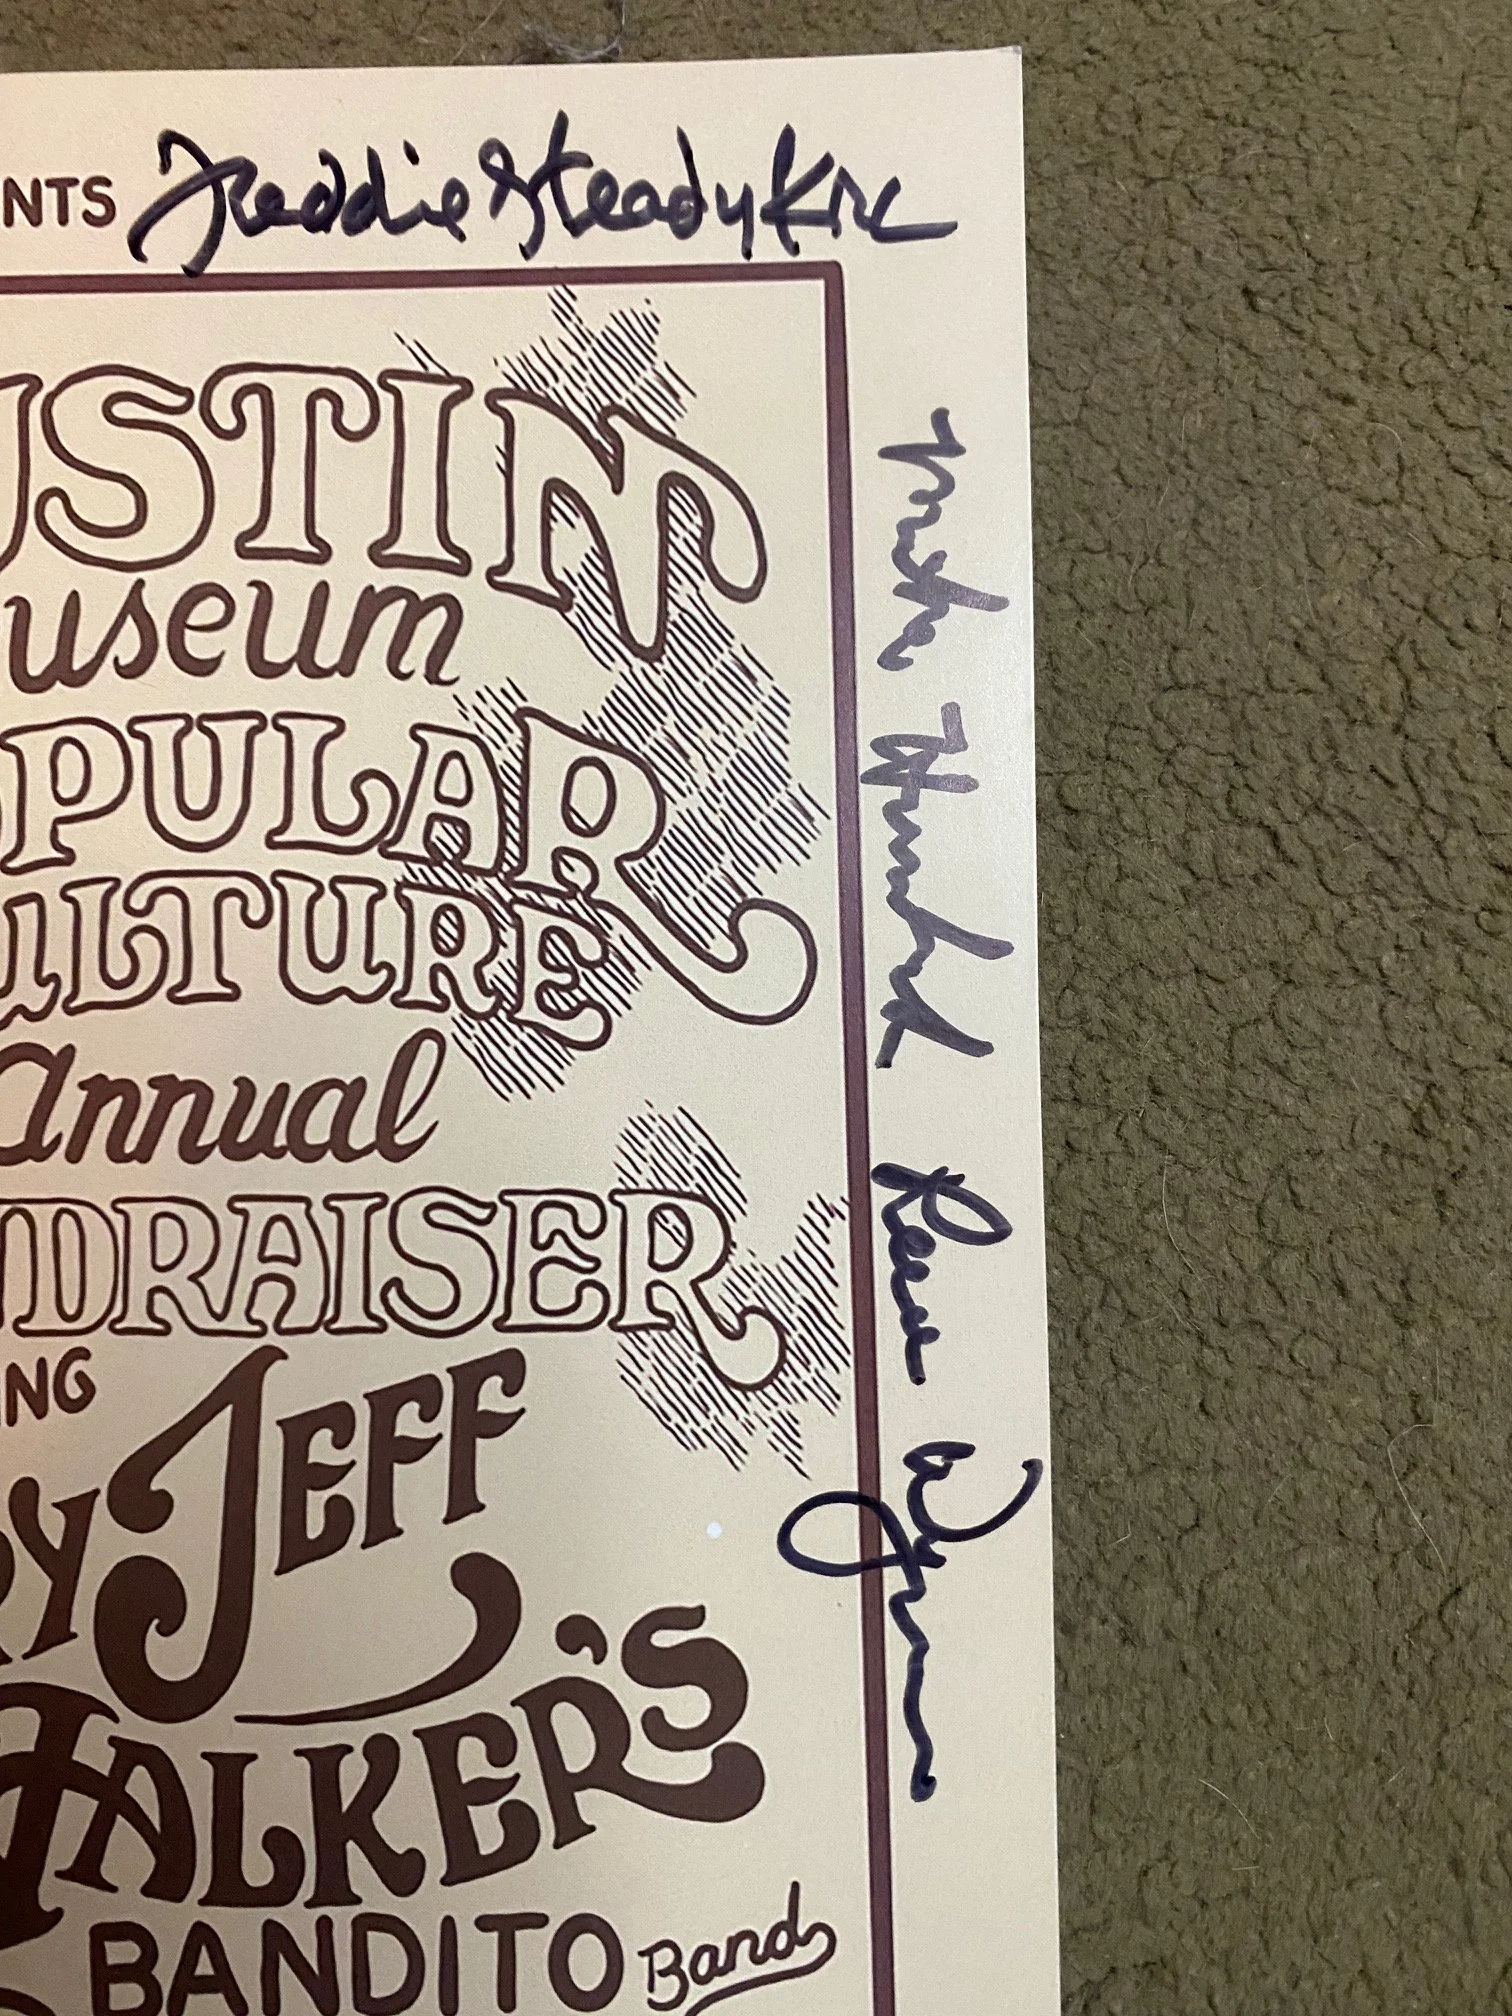 NTS Freddie Steady Krc
USTIN
useum
OPULAR
ULTURE
annual
NDRAISER
NG
RY JEFF
WALKER'S
BANDITO Band
Reese Wynans